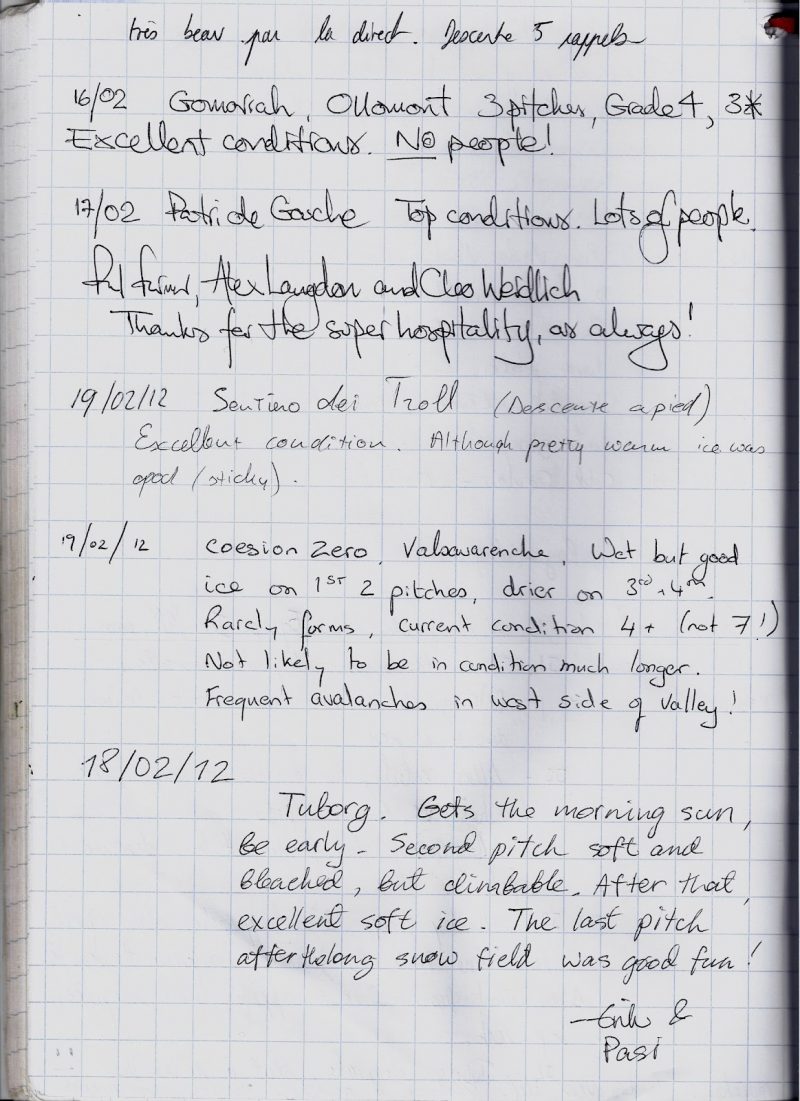 très beau par la direct. Descente 5 rappels
16/02 Gomorrah, Ollomont 3 pitches, Grade 4, 3*
Excellent conditions. NO people!
17/02 Patri de Gosche Top conditions. Lots of people.
Alex Langdon and Cleo Weidlich
Thanks for the super hospitality, as always!
19/02/12 Sentino dei Troll (Descente a pied)
Excellent condition. Although pretty warm ice was
good (sticky).
19/02/12 Coesion Zero, Valsavarenche, Wet but good
ice on 1st 2 pitches, drier on 3rd + 4th.
Rarely forms, current condition 4+ (not 7!)
Not likely to be in condition much longer.
Frequent avalanches in west side of valley!
18/02/12
Tuborg. Gets the morning sun,
be early. Second pitch soft and
bleached, but climbable. After that,
excellent soft ice. The last pitch
after the long snow field was good fun!
—Erik &
Pasi